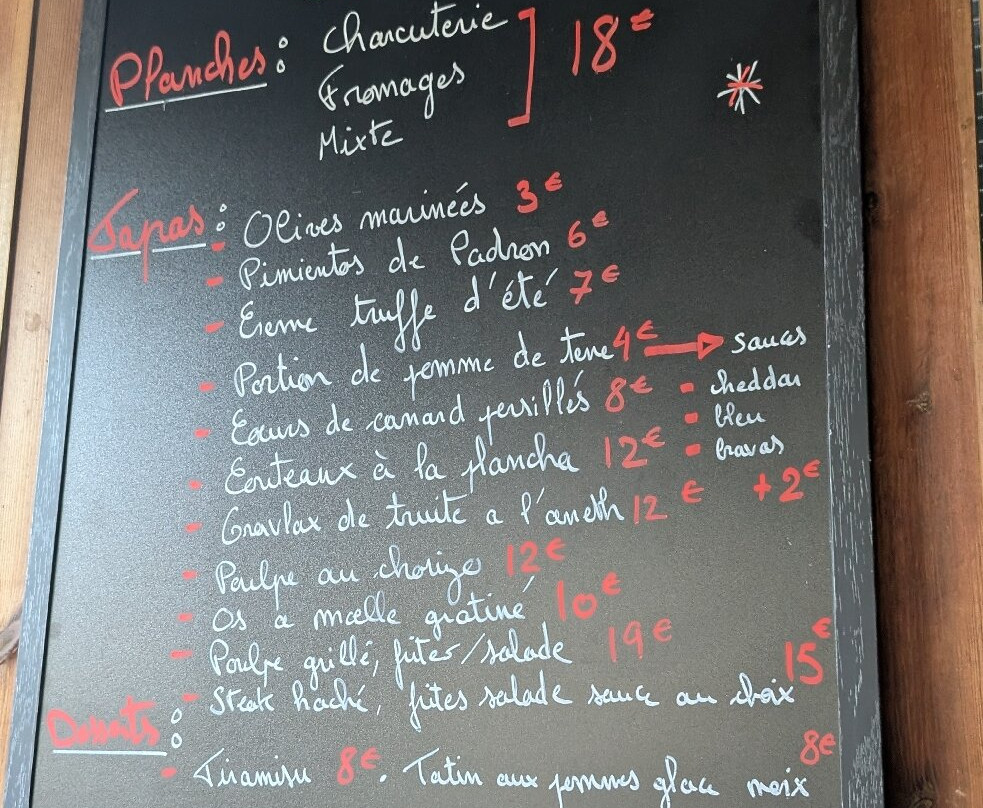 Planches : Charcuterie ] 18€
Fromages
Mixte
Tapas :
- Olives marinéés 3€
- Pimientos de Padron 6€
- Creme truffe d'été 7€
- Portion de pomme de terre 4€ → sauces
- cheddar
- Cœurs de canard persillés 8€
- bleu
- bravas
- Couteaux à la plancha 12€
+2€
- Gravlax de truite a l'aneth 12€
- Poulpe au chorizo 12€
- Os a mœlle gratiné 10€
- Poulpe grillé, frites/salade 19€
- Steak haché, frites salade sauce au choix 15€
Desserts :
- Tiramisu 8€. Tatin aux pommes glace noix 8€